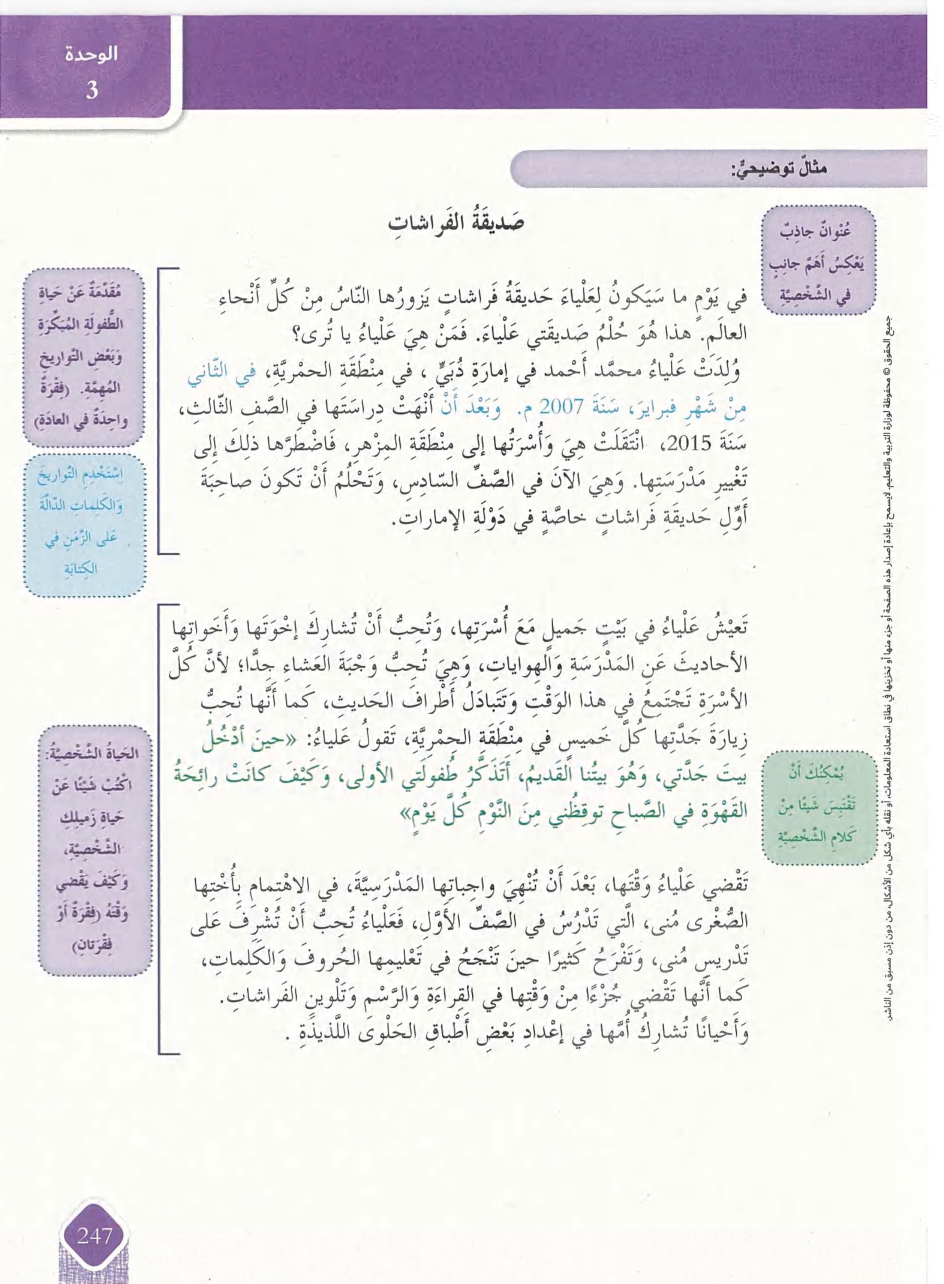 الوحدة
3
مثالٌ توضيحيٌّ:
صَديقَةُ الفَراشاتِ
عُنْوانٌ جاذِبٌ
يَعْكِسُ أَهَمَّ جانِبٍ
في الشَّخْصِيَّةِ
في يَوْمٍ ما سَيَكونُ لِعَلْياءَ حَديقَةُ فَراشاتٍ يَزورُها النّاسُ مِنْ كُلِّ أَنْحاءِ
العالَمِ. هذا هُوَ حُلْمُ صَديقَتي عَلْياءَ. فَمَنْ هِيَ عَلْياءُ يا تُرى؟
وُلِدَتْ عَلْياءُ محمَّد أَحْمد في إمارَةِ دُبَيٍّ ، في مِنْطَقَةِ الحمْرِيَّةِ، في الثّاني
مِنْ شَهْرِ فبرايرَ، سَنَةَ 2007 م. وَبَعْدَ أَنْ أَنْهَتْ دِراسَتَها في الصَّفِ الثّالثِ،
سَنَةَ 2015، انْتَقَلَتْ هِيَ وَأُسْرَتُها إلى مِنْطَقَةِ المزْهرِ، فَاضْطَرَّها ذلِكَ إلى
تَغْييرِ مَدْرَسَتِها. وَهِيَ الآنَ في الصَّفِّ السّادِسِ، وَتَحْلُمُ أَنْ تَكونَ صاحِبَةَ
أَوَّلِ حَديقَةِ فَراشاتٍ خاصَّةٍ في دَوْلَةِ الإماراتِ.
مُقَدِّمَةٌ عَنْ حَياةِ
الطُّفولَةِ المُبَكِّرَةِ
وَبَعْضِ التَّواريخِ
المُهِمَّةِ. (فِقْرَةٌ
واحِدَةٌ في العادَةِ)
اِسْتَخْدِمِ التَّواريخَ
وَالكَلِماتِ الدّالَّةَ
عَلى الزَّمَنِ في
الكِتابَةِ
تَعيْشُ عَلْياءُ في بَيْتٍ جَميلٍ مَعَ أُسْرَتِها، وَتُحِبُّ أَنْ تُشارِكَ إخْوَتَها وَأَخَواتِها
الأحاديثَ عَنِ المَدْرَسَةِ وَالهِواياتِ، وَهِيَ تُحِبُّ وَجْبَةَ العَشاءِ جِدًّا؛ لأنَّ كُلَّ
الأسْرَةِ تَجْتَمِعُ في هذا الوَقْتِ وَتَتَبادَلُ أَطْرافَ الحَديثِ، كَما أنَّها تُحِبُّ
زِيارَةَ جَدَّتِها كُلَّ خَميسٍ في مِنْطَقَةِ الحِمْرِيَّةِ، تَقولُ عَلياءُ: «حينَ أدْخُلُ
بيتَ جَدَّتي، وَهُوَ بيتُنا القَديمُ، أَتَذَكَّرُ طُفولَتي الأولى، وَكَيْفَ كانَتْ رائِحَةُ
القَهْوَةِ في الصَّباحِ توقِظُني مِنَ النَّوْمِ كُلَّ يَوْمٍ»
يُمْكِنُكَ أَنْ
تَقْتَبِسَ شَيئًا مِنْ
كَلامِ الشَّخْصِيَّةِ
الحَياةُ الشَّخْصِيَّةُ:
اكْتُبْ شَيْئًا عَنْ
حَياةِ زَميلِكِ
الشَّخْصِيَّةِ،
وَكَيْفَ يَقْضي
وَقْتَهُ (فِقْرَةٌ أَوْ
فِقْرَتانِ)
تَقْضي عَلْياءُ وَقْتَها، بَعْدَ أَنْ تُنْهِيَ واجِباتِها المَدْرَسِيَّةَ، في الاهْتِمامِ بِأُخْتِها
الصُّغْرى مُنى، الَّتي تَدْرُسُ في الصَّفِّ الأوَّلِ، فَعَلْياءُ تُحِبُّ أَنْ تُشْرِفَ عَلى
تَدْريسِ مُنى، وَتَفْرَحُ كَثيرًا حينَ تَنْجَحُ في تَعْليمِها الحُروفَ وَالكَلِماتِ،
كَما أَنَّها تَقْضي جُزْءًا مِنْ وَقْتِها في القِراءَةِ وَالرَّسْمِ وَتَلْوينِ الفَراشاتِ.
وَأَحْيانًا تُشارِكُ أُمَّها في إعْدادِ بَعْضِ أَطْباقِ الحَلْوى اللَّذيذَةِ .
جميع الحقوق © محفوظة لوزارة التربية والتعليم. لا يسمح بإعادة إصدار هذه الصفحة أو جزء منها أو تخزينها في نطاق استعادة المعلومات، أو نقله بأي شكل من الأشكال، من دون إذن مسبق من الناشر.
247